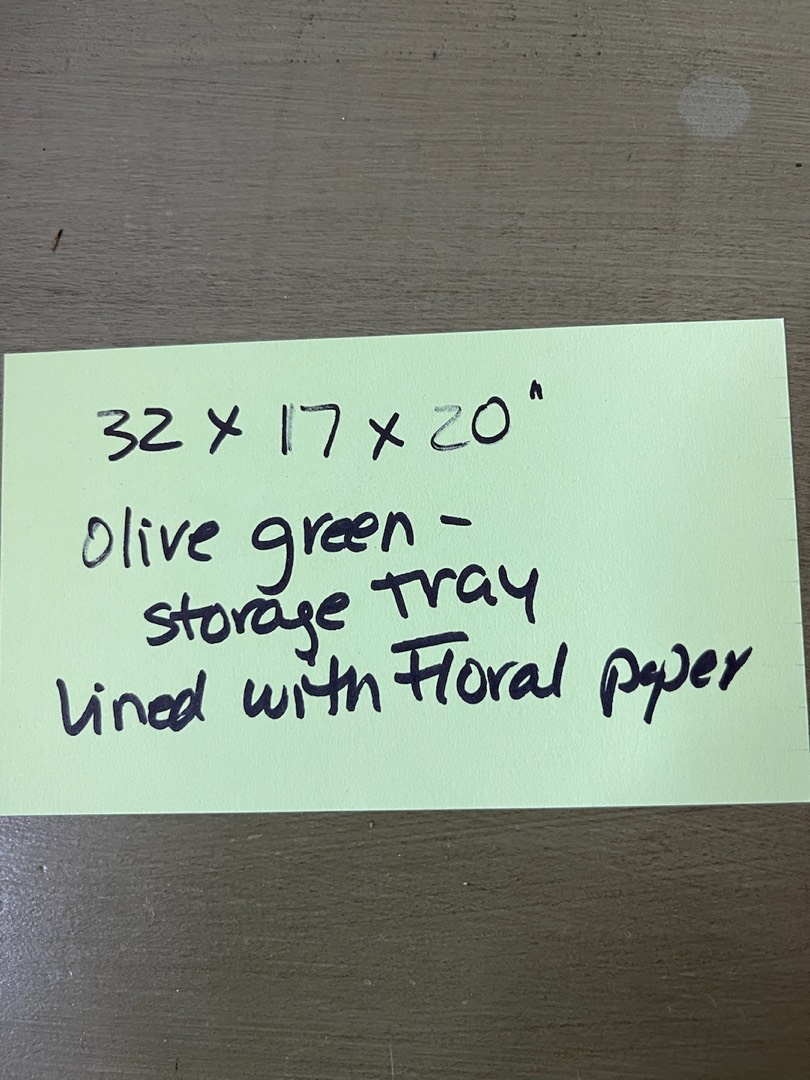 32 x 17 x 20"
Olive green -
storage tray
lined with Floral paper